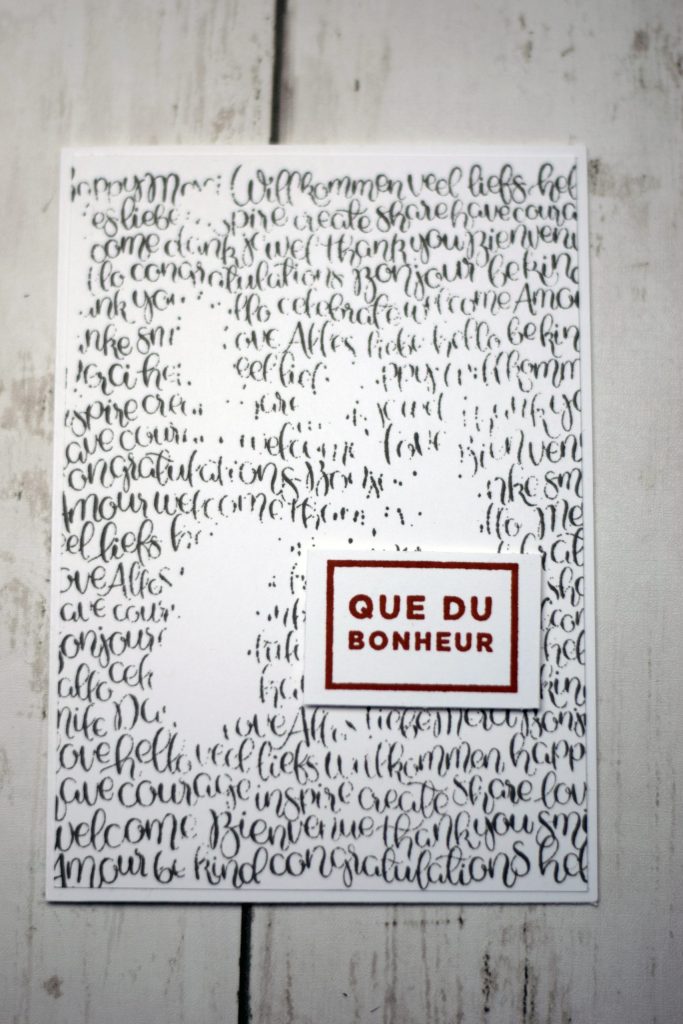 Willkommen veel liefs hel
es liebe spire create share have coura
come dank je wel thank you Bienvenu
llo congratulations Bonjour be kind
ank you llo celebrate welcome Amou
nke smi ove Alles liebe hello be kin
erci he eel lief ppy willkomm
spire crea are je wel ank yo
ave cour welcome love Bienven
ongratulations Bonj nke sm
Amour welcome than llo Me
eel liefs h
ove Alles
ave cour
QUE DU
BONHEUR
onjour
allo cele
kin
ove Alles liebe Merci Bonj
ove hello veel liefs willkommen happ
ave courage inspire create share lov
welcome Bienvenue thank you smi
Amour be kind congratulations hel